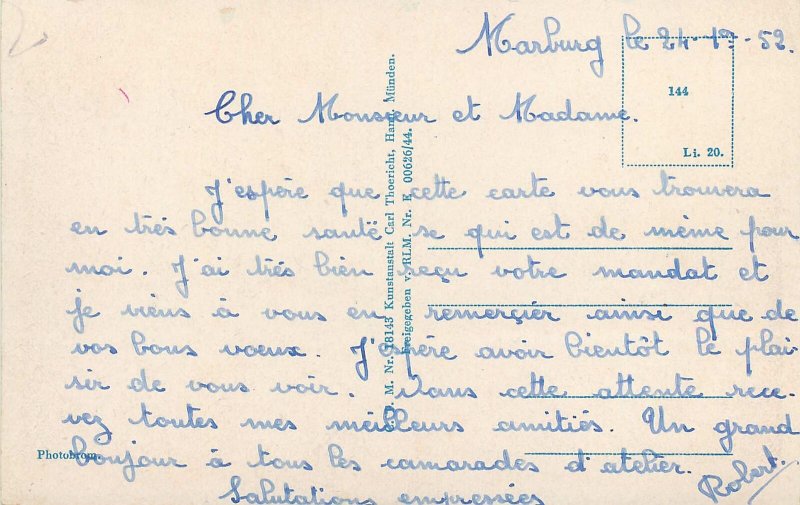 Marburg le 24-12-52
144
Li. 20.
Cher Monsieur et Madame.
J'espére que cette carte vous trouvera
en trés bonne santé se qui est de même pour
moi. J'ai trés bien reçu votre mandat et
je viens à vous en remerçier ainsi que de
vos bons voeux. J'espére avoir bientôt le plai-
sir de vous voir. Dans cette attente rece-
vez toutes mes meilleurs amitiés. Un grand
bonjour à tous les camarades d'atelier.
Salutations empressées
Robert.
Photobrom.
M. Nr. 28143 Kunstanstalt Carl Thoericht, Hann. Münden.
Freigegeben v. RLM. Nr. E 00626/44.